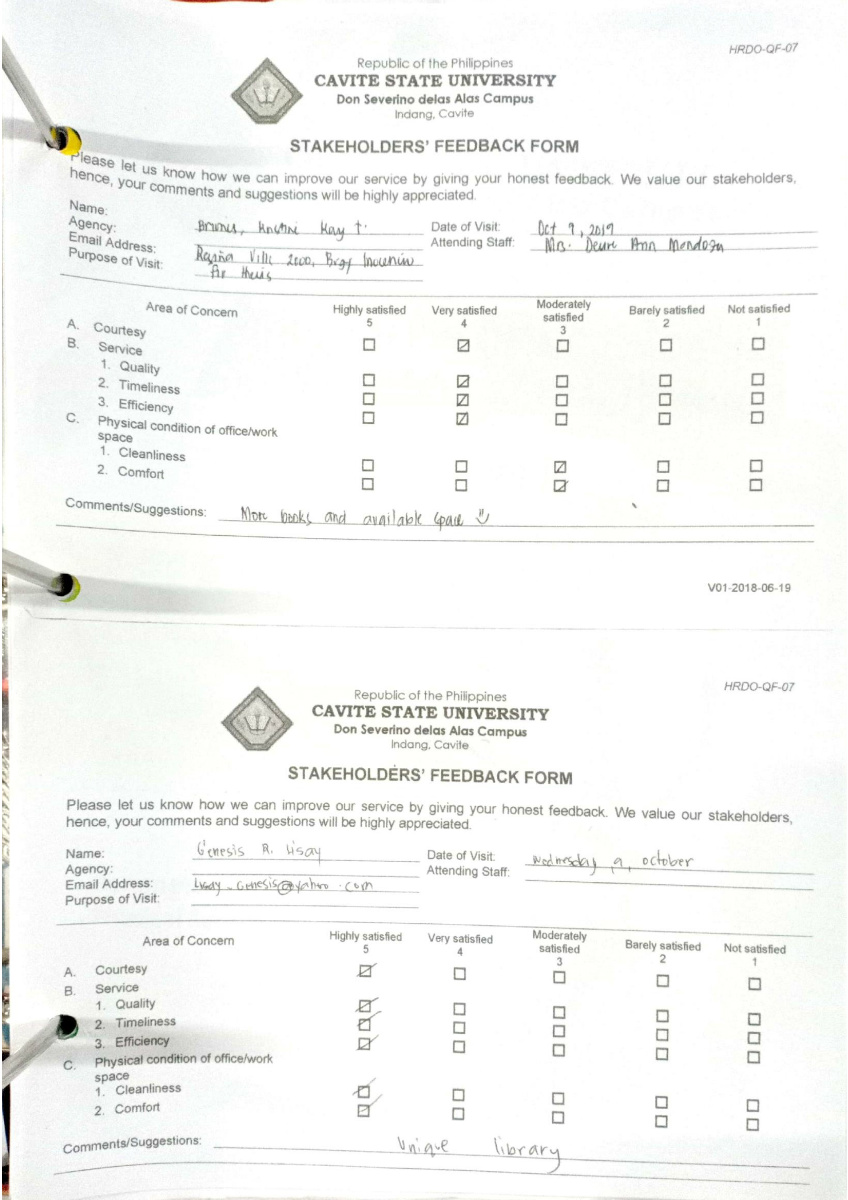 HRDO-QF-07
Republic of the Philippines
CAVITE STATE UNIVERSITY
Don Severino delas Alas Campus
Indang, Cavite
STAKEHOLDERS' FEEDBACK FORM
Please let us know how we can improve our service by giving your honest feedback. We value our stakeholders,
hence, your comments and suggestions will be highly appreciated.
Name:
Agency: Kay t. Date of Visit: Oct 9, 2019
Email Address: Ville 2000, Brgy Attending Staff: Mrs. Ann Mendoza
Purpose of Visit: For thesis
Area of Concern Highly satisfied 5 Very satisfied 4 Moderately satisfied 3 Barely satisfied 2 Not satisfied 1
A. Courtesy
B. Service
1. Quality
2. Timeliness
3. Efficiency
C. Physical condition of office/work
space
1. Cleanliness
2. Comfort
Comments/Suggestions: More books and available space
V01-2018-06-19
HRDO-QF-07
Republic of the Philippines
CAVITE STATE UNIVERSITY
Don Severino delas Alas Campus
Indang, Cavite
STAKEHOLDERS' FEEDBACK FORM
Please let us know how we can improve our service by giving your honest feedback. We value our stakeholders,
hence, your comments and suggestions will be highly appreciated.
Name: Genesis R. Lisay Date of Visit: Wednesday 9, october
Agency: Attending Staff:
Email Address: Lisay_Genesis@yahoo.com
Purpose of Visit:
Area of Concern Highly satisfied 5 Very satisfied 4 Moderately satisfied 3 Barely satisfied 2 Not satisfied 1
A. Courtesy
B. Service
1. Quality
2. Timeliness
3. Efficiency
C. Physical condition of office/work
space
1. Cleanliness
2. Comfort
Comments/Suggestions: Unique library